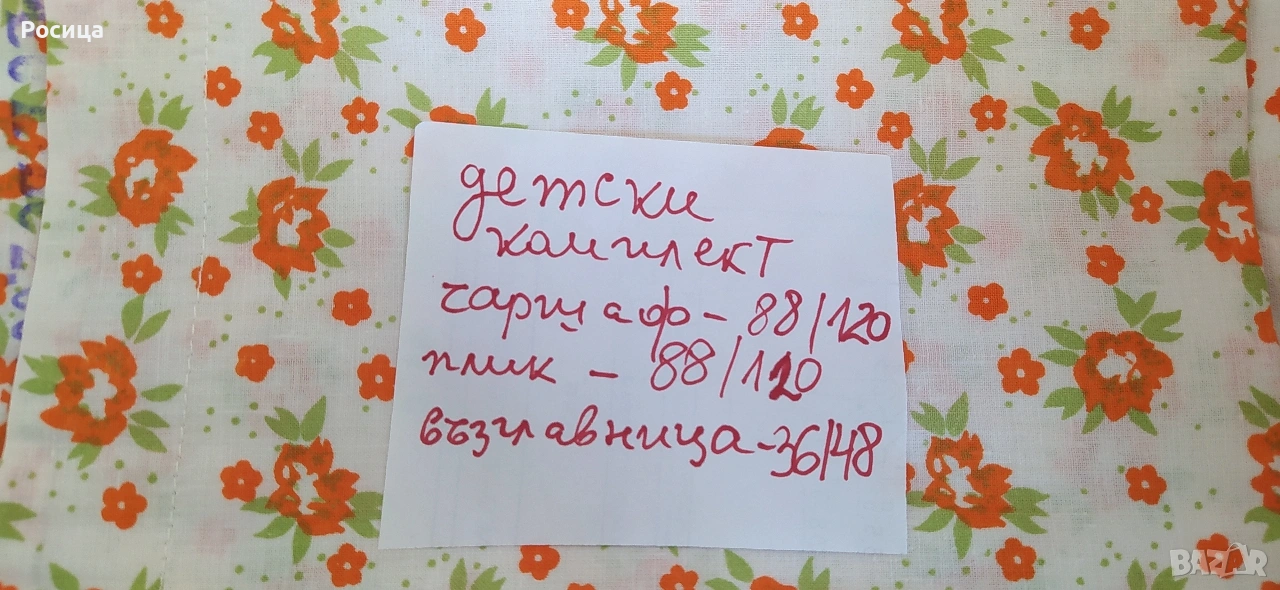 Росица
детски
комплект
чаршаф - 88/120
плик - 88/120
възглавница - 36/48
BAZAR